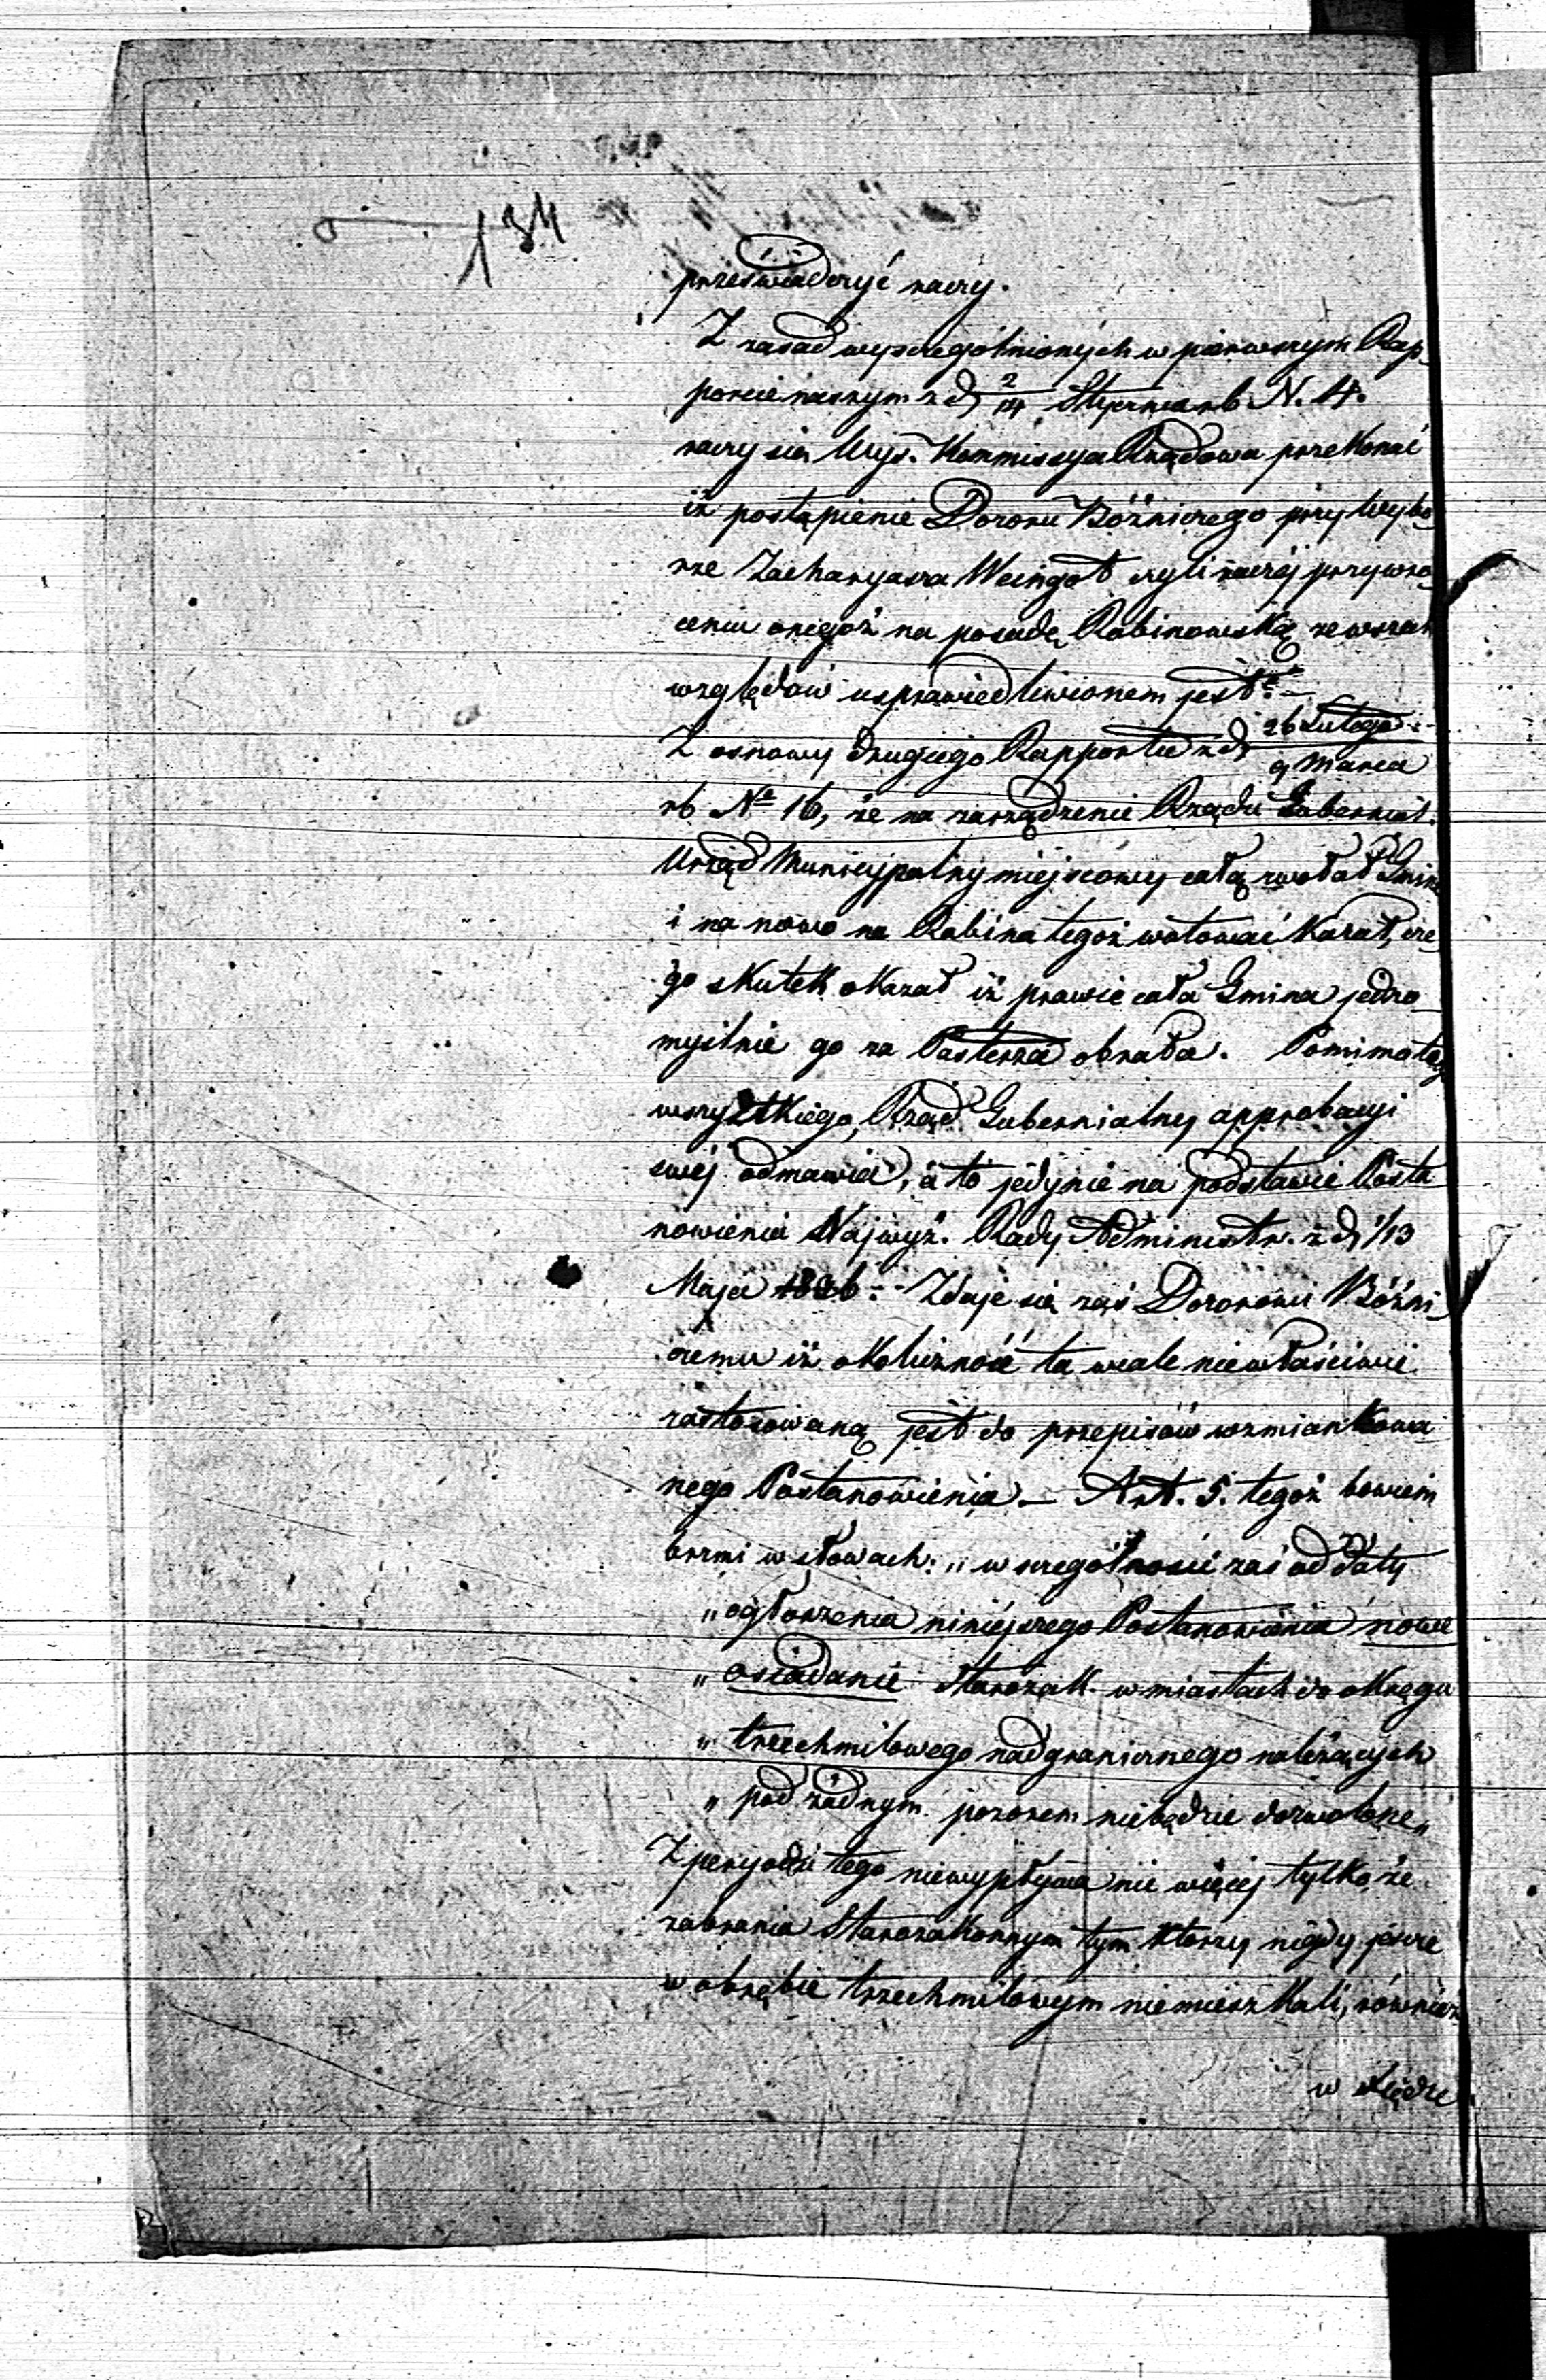 134
przeświadczyć raczy.
Z zasad wyszczególnionych w pierwszym Rap¬
porcie naszym z dj 2/14 Stycznia rb N. 4.
raczy się Wys. Kommissya Rządowa przekonać
iż postąpienie Dozoru Bóżniczego przy Wybo¬
rze Zacharyasza Weingot czyli raczéj przywró¬
ceniu onegoż na posadę Rabinowską ze wszech
względów usprawiedliwionem jest. –
Z osnowy drugiego Rapportu z dj 26 Lutego / 9 Marca
rb No 16, że na zarządzenie Rządu Gubernial.
Urząd Municypalny miejscowy całą zwołał Gminę
i na nowo na Rabina tegoż wotować kazał, cze¬
go skutek okazał iż prawie cała Gmina jedno¬
myślnie go za Pasterza obrała. Pomimo tego
wszystkiego, Rząd Gubernialny approbacyi
swéj odmawia, a to jedynie na podstawie Posta
nowienia Najwyż. Rady Administr. z dj 1/13
Maja 1836. – Zdaje się zaś Dozorowi Bóżni
czemu iż okoliczność ta wcale niewłaściwie
zastosowaną jest do przepisów wzmiankowa
nego Postanowienia – Art. 5. tegoż bowiem
brzmi w słowach: „w szczególności zaś od daty
„ogłoszenia niniéjszego Postanowienia nowe
„osiadanie Starozak. w miastach do okręgu
„trzechmilowego nadgranicznego należących
„pod żadnym pozorem niebędzie dozwolone„
Z peryodu tego niewypływa nic więcéj tylko że
zabrania Starozakonnym tym którzy nigdy jeszcze
w obrębie trzechmilowym niemieszkali, również